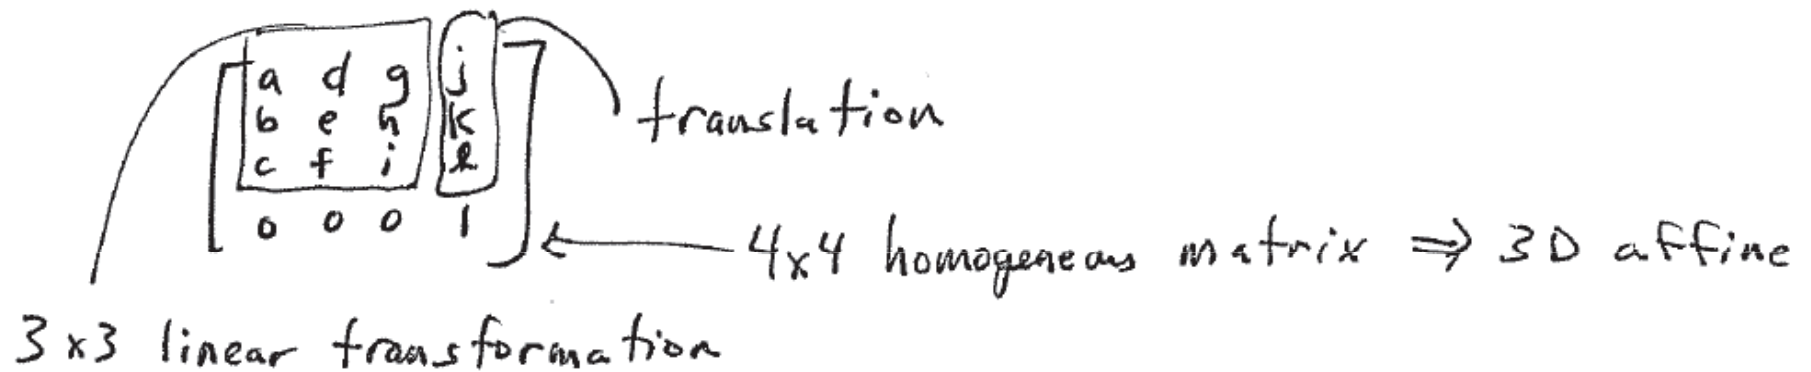 a d g j
b e h k
c f i l
0 0 0 1
translation
4x4 homogeneous matrix ⇒ 3D affine
3x3 linear transformation